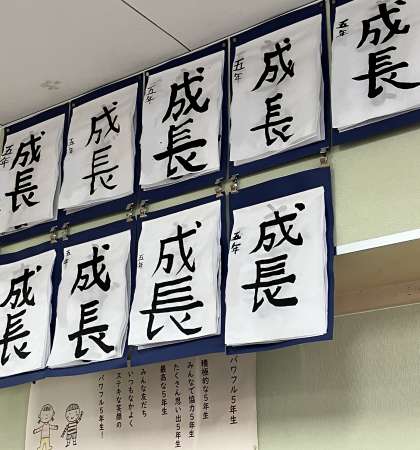 成長
五年
成長
五年
成長
五年
成長
五年
成長
五年
成長
成長
五年
成長
五年
成長
五年
パワフル5年生
積極的な5年生
みんなで協力5年生
たくさん思い出5年生
最高な5年生
みんな友だち
いつもなかよく
ステキな笑顔の
パワフル5年生!